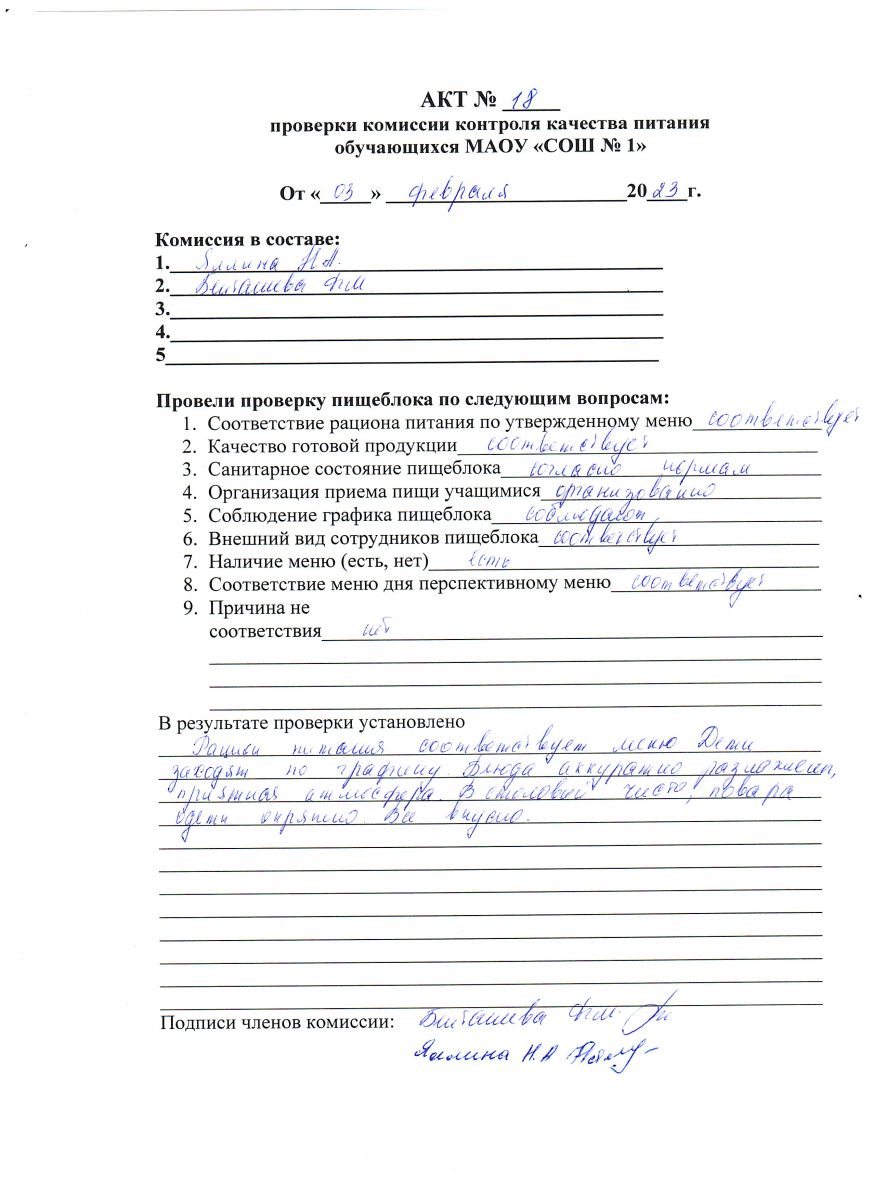 АКТ № 18
проверки комиссии контроля качества питания
обучающихся МАОУ «СОШ № 1»
От «03» февраля 2023г.
Комиссия в составе:
1. Яллина Н.А.
2. Бикташева Ф М
3.
4.
5
Провели проверку пищеблока по следующим вопросам:
1. Соответствие рациона питания по утвержденному меню соответствует
2. Качество готовой продукции соответствует
3. Санитарное состояние пищеблока согласно нормам
4. Организация приема пищи учащимися организованно
5. Соблюдение графика пищеблока соблюдают
6. Внешний вид сотрудников пищеблока соответствует
7. Наличие меню (есть, нет) есть
8. Соответствие меню дня перспективному меню соответствует
9. Причина не
соответствия нет
В результате проверки установлено
Рацион питания соответствует меню Дети
заходят по графику. Блюда аккуратно разложены,
приятная атмосфера. В столовой чисто, повара
одеты опрятно. Все вкусно.
Подписи членов комиссии: Ф.М.
Яллина Н.А